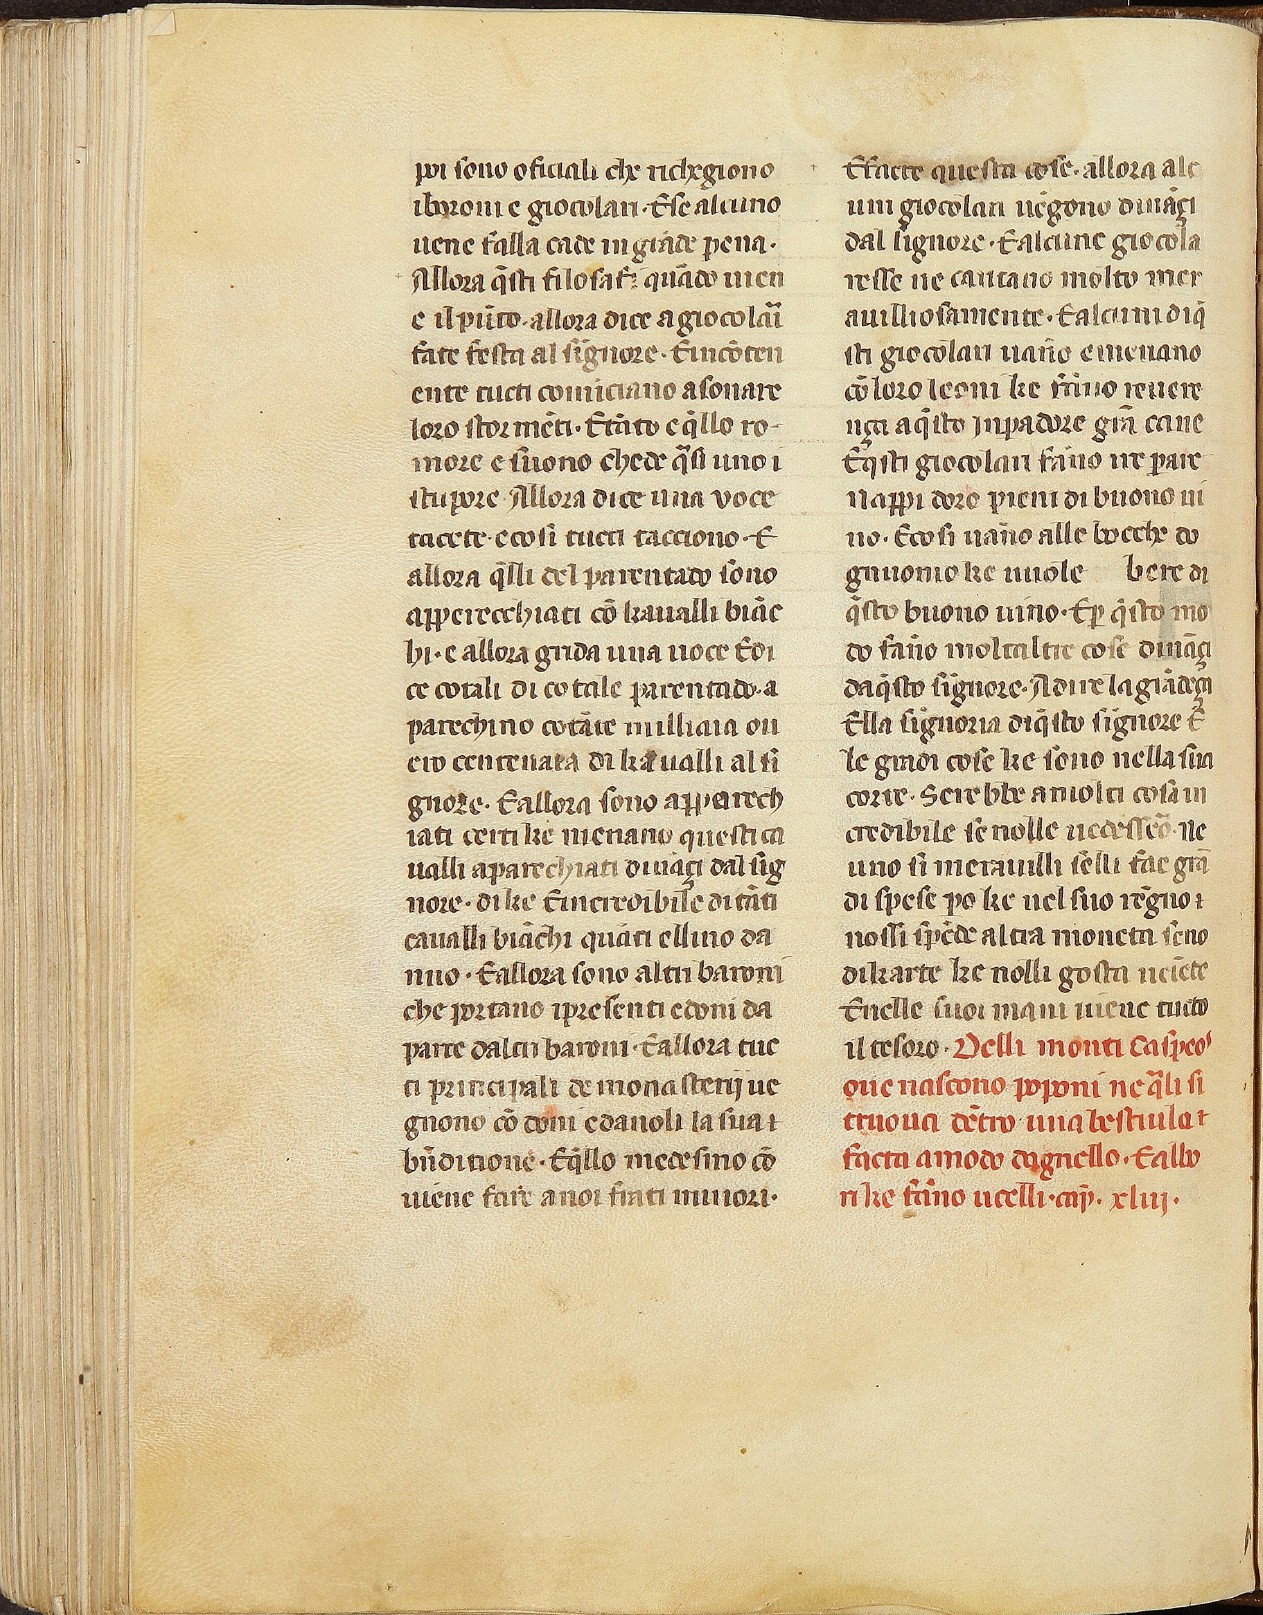 poi sono oficiali che richegiono
iboroni e giocolari·Ese alcuno
uene falla cade in grāde pena·
Allora q̄sti filosafi quādo uien
e il pūto·allora dice a giocolāi
fate festa al signore·Eincōten
ente tucti cominciano asonare
loro stormēti·Etāto e q̄llo ro-
more e suono chede q̄si uno i
stupore·Allora dice una voce
tacete·ecosi tucti tacciono·E
allora q̄lli del parentado sono
apperecchiati cō kaualli biāc
hi·e allora grida una uoce Edi
ce cotali di cotale parentado·a
parechino cotāte milliaia ou
ero centenara di kaualli al si
gnore·Eallora sono apparech
iati certi ke menano questi ca
ualli aparechiati dināçi dal sig
nore·di ke Eincredibile di tāti
caualli biāchi quāti ellino da
nno·Eallora sono altri baroni
che portano ipresenti edoni da
parte daltri baroni·Eallora tuc
ti principali de monasterij ue
gnono cō doni edanoli la sua ı
bn̄ditione·Eq̄llo medesino cō
uiene fare anoi frati minori·
Efacte questa cose·allora alc
uni giocolari uēgono dināçi
dal signore·Ealcune giocola
resse ne cantano molto mer
auilliosamente·Ealcuni diq̄
sti giocolari uāno emenano
cō loro leoni ke fāno reuere
nça aq̄sto Inpadore grā cane
Eq̄sti giocolari fāno ue pare
nappi doro pieni di buono ui
no·Ecosi uāno alle bocche do
gnuomo ke uuole bere di
q̄sto buono uino·Ep̄ q̄sto mo
do fāno moltaltre cose dināçi
daq̄sto signore·Adire la grādeça
Ella signoria diq̄sto signore E
le grādi cose ke sono nella sua
corte·Serebbe amolti cosa in
credibile se nolle uedessero·Ne
uno si merauilli selli fae grā
di spese po ke nel suo rēgno ı
nossi spēde altra moneta seno
dikarte ke nolli gosta neiēte
Enelle suoi mani uiene tucto
il tesoro·Delli monti Caspeoꝰ
oue nascono poponi ne q̄li si
truoua dētro una bestiula ı
facta amodo dagnello·Ealbo
ri ke fāno ucelli·cap̄·xliij·